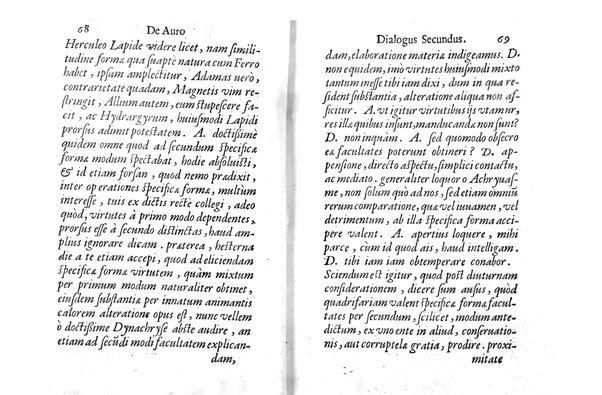 68 De Auro
Herculeo Lapide videre licet, nam simili-
tudine formæ qua suapte natura cum Ferro
habet, ipsum amplectitur, Adamas uerò,
contrarietate quadam, Magnetis vim re-
stringit, Allium autem, eum stupescere fa-
cit, ac Hydrargyrum, huiusmodi Lapidi
prorsus adimit potestatem. A. doctissimè
quidem omne quod ad secundum specificæ
formæ modum spectabat, hodie absoluisti,
& id etiam forsan, quod nemo prædixit,
inter operationes specificæ formæ, multùm
interesse, tuis ex dictis rectè collegi, adeo
quòd, virtutes à primo modo dependentes,
prorsus esse à secundo distinctas, haud am-
plius ignorare dicam. præterea, hesterna
die a te etiam accepi, quod ad eliciendam
specificæ formæ virtutem, quàm mixtum
per primum modum naturaliter obtinet,
eiusdem substantiæ per innatum animantis
calorem alteratione opus est, nunc vellem
ò doctissime Dynachryse abste audire, an
etiam ad secũdi modi facultatem explican-
dam,
Dialogus Secundus. 69
dam, elaboratione materiæ indigeamus. D.
non equidem, imò virtutes huiusmodi mixto
tantum inesse tibi iam dixi, dum in qua re-
sident substantia, alteratione aliqua non af-
ficitur. A. vt igitur virtutibus ijs vtamur,
res illæ quibus insunt, manducandæ non sunt?
D. non inquam. A. sed quomodo obsecro
eæ facultates poterunt obtineri? D. ap-
pensione, directo aspectu, simplici contactu,
ac mediato. generaliter loquor o Achryas-
me, non solum quò ad nos, sed etiam omniũ
rerum comparatione, quæ vel iuuamen, vel
detrimentum, ab illa specifica forma acci-
pere valent. A. apertius loquere, mihi
parce, cùm id quod ais, haud intelligam.
D. tibi iam iam obtemperare conabor.
Sciendum est igitur, quod post diuturnam
considerationem, dicere sum ausus, quòd
quadrifariam valent specificæ formæ facul-
tates per secundum, scilicet, modum ante-
dictum, ex vno ente in aliud, conseruatio-
nis, aut corruptelæ gratia, prodire. proxi-
mitate